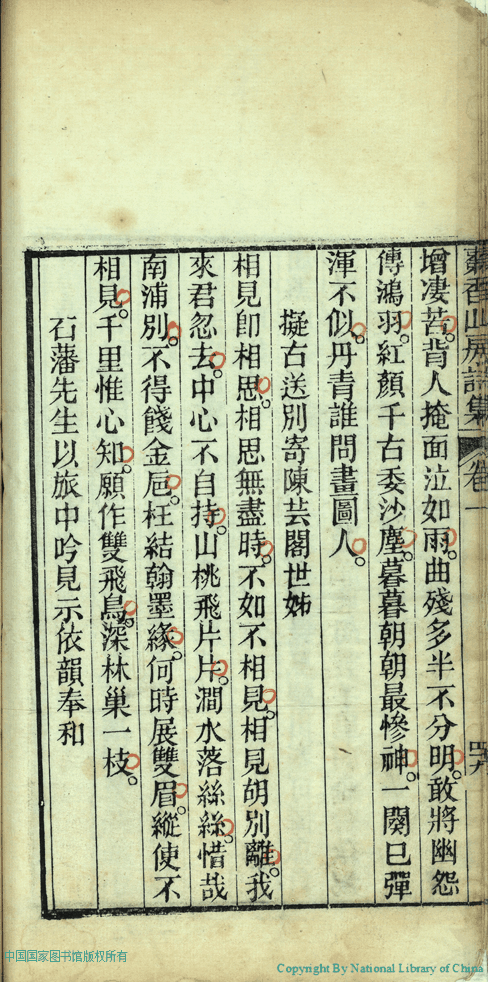 香山房詩集 卷一
增凄苦。背人掩面泣如雨。曲殘多半不分明。敢將幽怨
傳鴻羽。紅顏千古委沙塵。暮暮朝朝最慘神。一闋已彈
渾不似。丹青誰問畫圖人。
擬古送別寄陳芸閣世姊
相見卽相思。相思無盡時。不如不相見。相見胡別離。我
來君忽去。中心不自持。山桃飛片片。澗水落絲絲。惜哉
南浦別。不得餞金卮。枉結翰墨緣。何時展雙眉。縱使不
相見。千里惟心知。願作雙飛鳥。深林巢一枝。
石藩先生以旅中吟見示依韻奉和
中国国家图书馆版权所有
Copyright By National Library of China